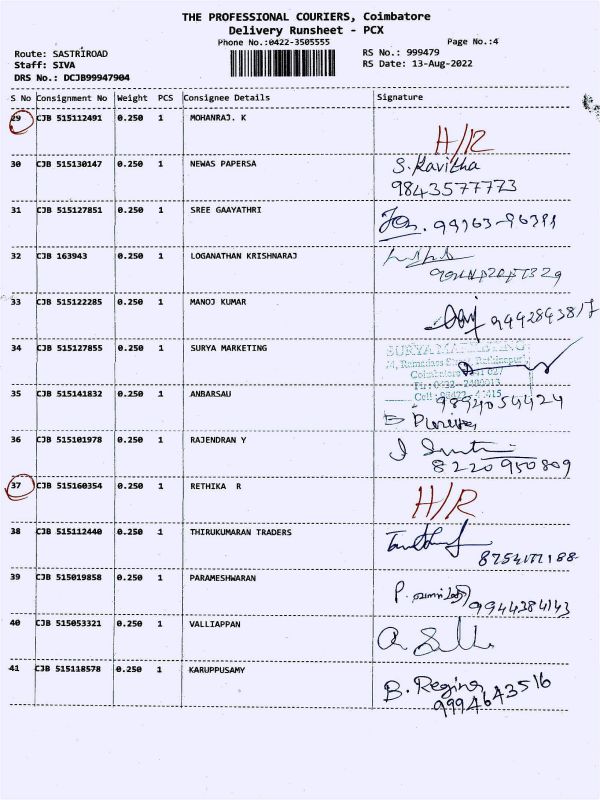 THE PROFESSIONAL COURIERS, Coimbatore
Delivery Runsheet - PCX
Phone No.:0422-3505555
Page No.:4
Route: SASTRIROAD
RS No.: 999479
Staff: SIVA
RS Date: 13-Aug-2022
DRS No.: DCJB99947904
S No Consignment No Weight PCS Consignee Details Signature
29 CJB 515112491 0.250 1 MOHANRAJ. K
H/R
30 CJB 515130147 0.250 1 NEWAS PAPERSA S. Kavitha
9843577773
31 CJB 515127851 0.250 1 SREE GAAYATHRI
99963-96391
32 CJB 163943 0.250 1 LOGANATHAN KRISHNARAJ
33 CJB 515122285 0.250 1 MANOJ KUMAR
9442843817
34 CJB 515127855 0.250 1 SURYA MARKETING
SURYA MARKETING
Coimbatore
Ph : 0422 - 2480013
Cell :
35 CJB 515141832 0.250 1 ANBARSAU 9894054424
36 CJB 515101978 0.250 1 RAJENDRAN Y
8220950809
37 CJB 515160354 0.250 1 RETHIKA R
H/R
38 CJB 515112440 0.250 1 THIRUKUMARAN TRADERS
39 CJB 515019858 0.250 1 PARAMESHWARAN
9944384143
40 CJB 515053321 0.250 1 VALLIAPPAN
41 CJB 515118578 0.250 1 KARUPPUSAMY
B. Regina
9994643516